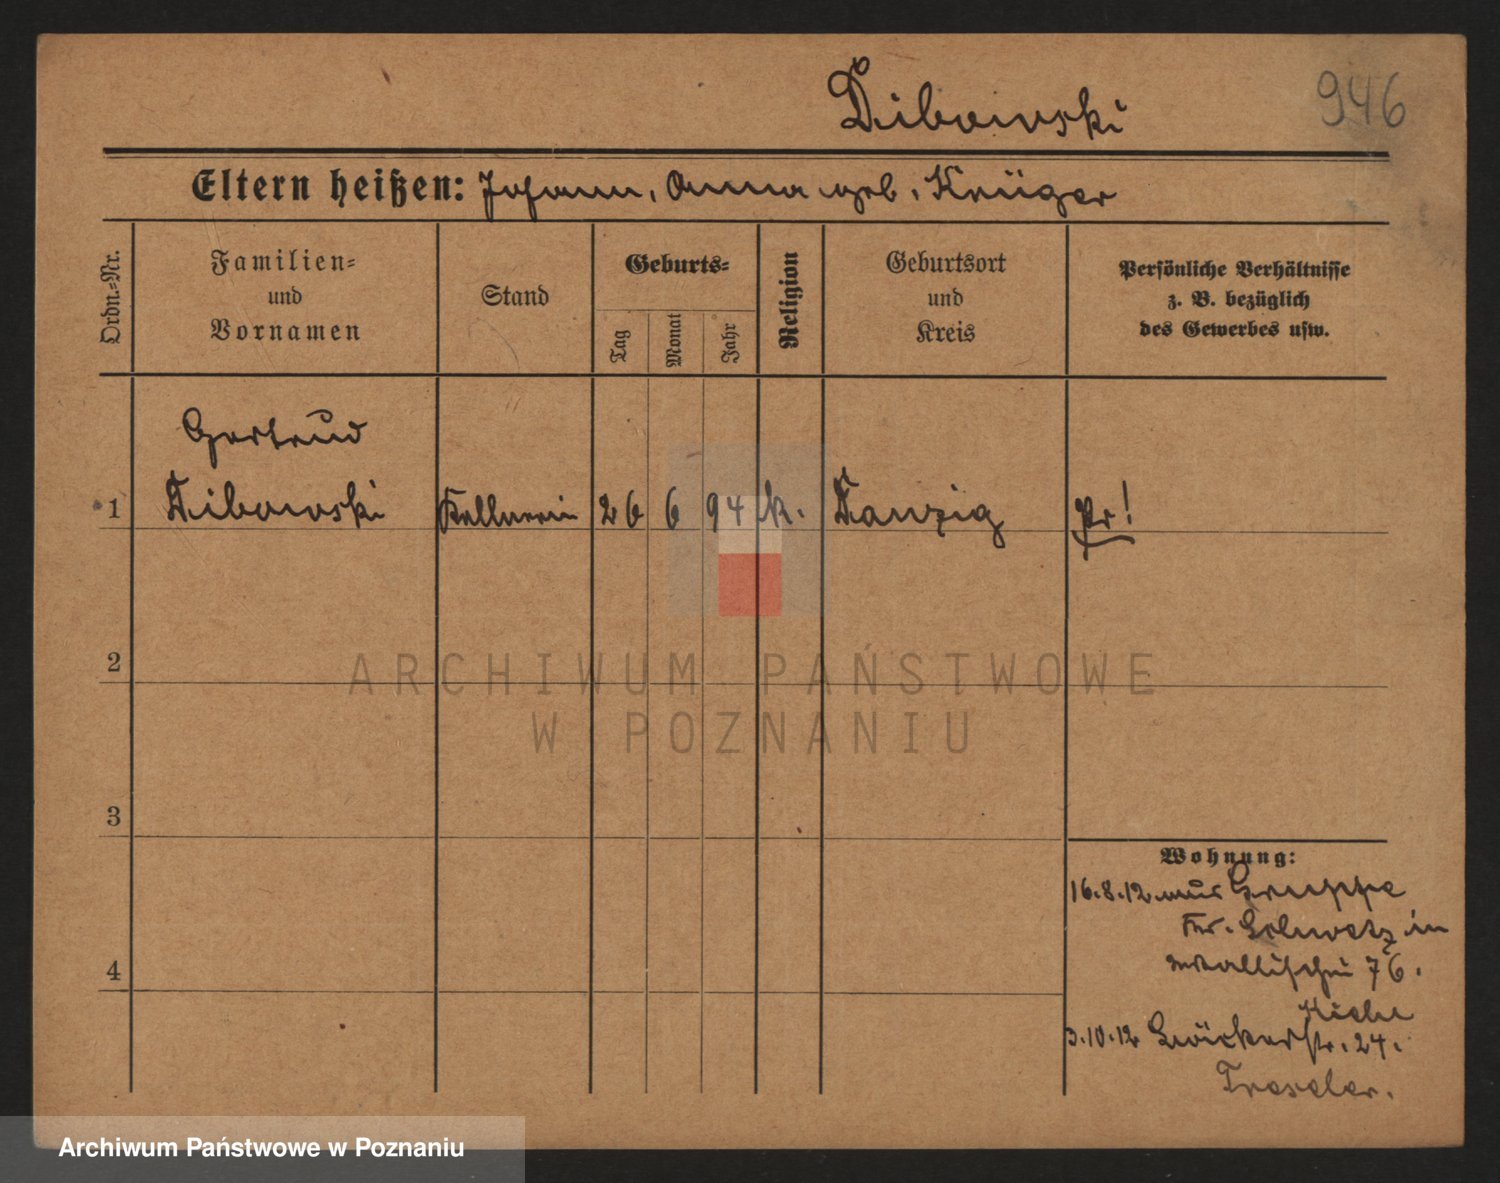 Dibowski
946
Eltern heißen: Johann, Anna geb. Krüger
Ordn.-Nr.
Familien-
und
Vornamen
Stand
Geburts-
Tag
Monat
Jahr
Religion
Geburtsort
und
Kreis
Persönliche Verhältnisse
z. B. bezüglich
des Gewerbes usw.
Gertrud
1 Dibowski Kellnerin 26 6 94 k. Danzig Pr!
2
3
4
Wohnung:
16.8.12 aus Gruppe
Kr. Schwetz in
Wallischei 76.
3.10.12 str. 24.
ARCHIWUM PAŃSTWOWE
W POZNANIU
Archiwum Państwowe w Poznaniu